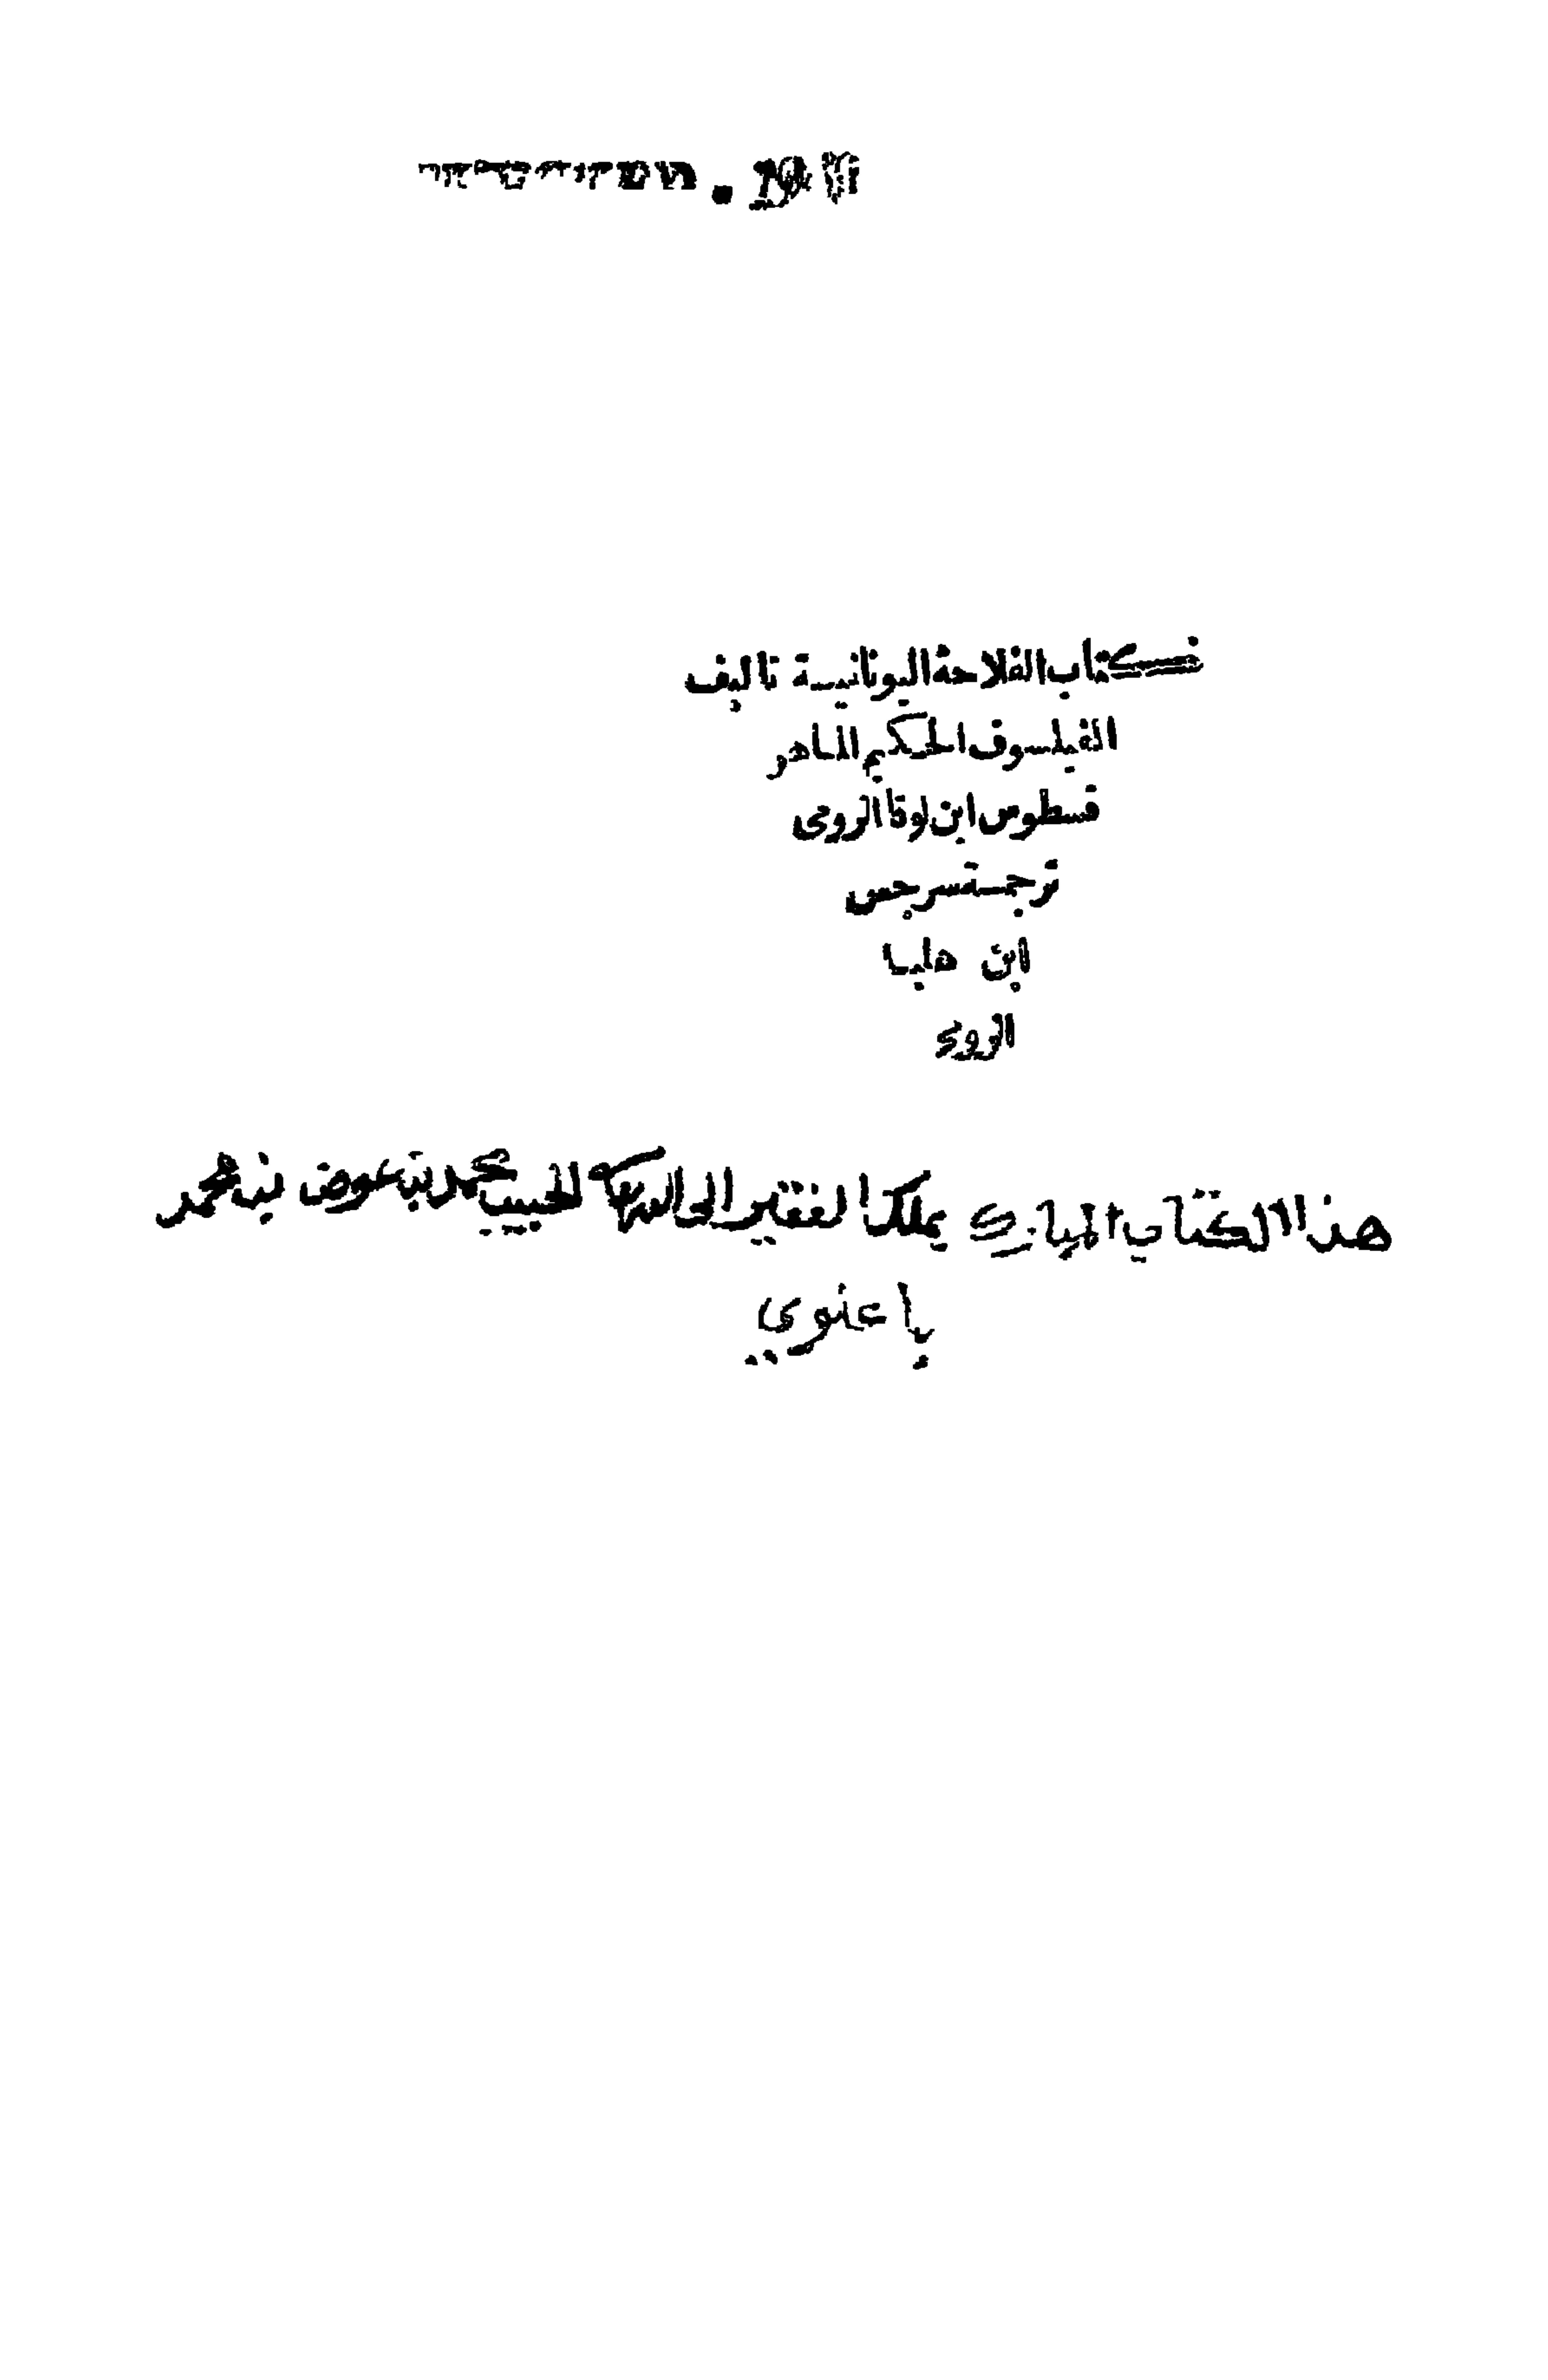 كتاب الفلاحة اليونانية تاليف
الفيلسوف الحكيم الماهر
قسطوس ابن لوقا الرومى
ترجمة سرجس
ابن هلبا
الرومى
هذا الكتاب المبارك بملك الفقير الى الله الحبيب محمد بن عوض بن محمد